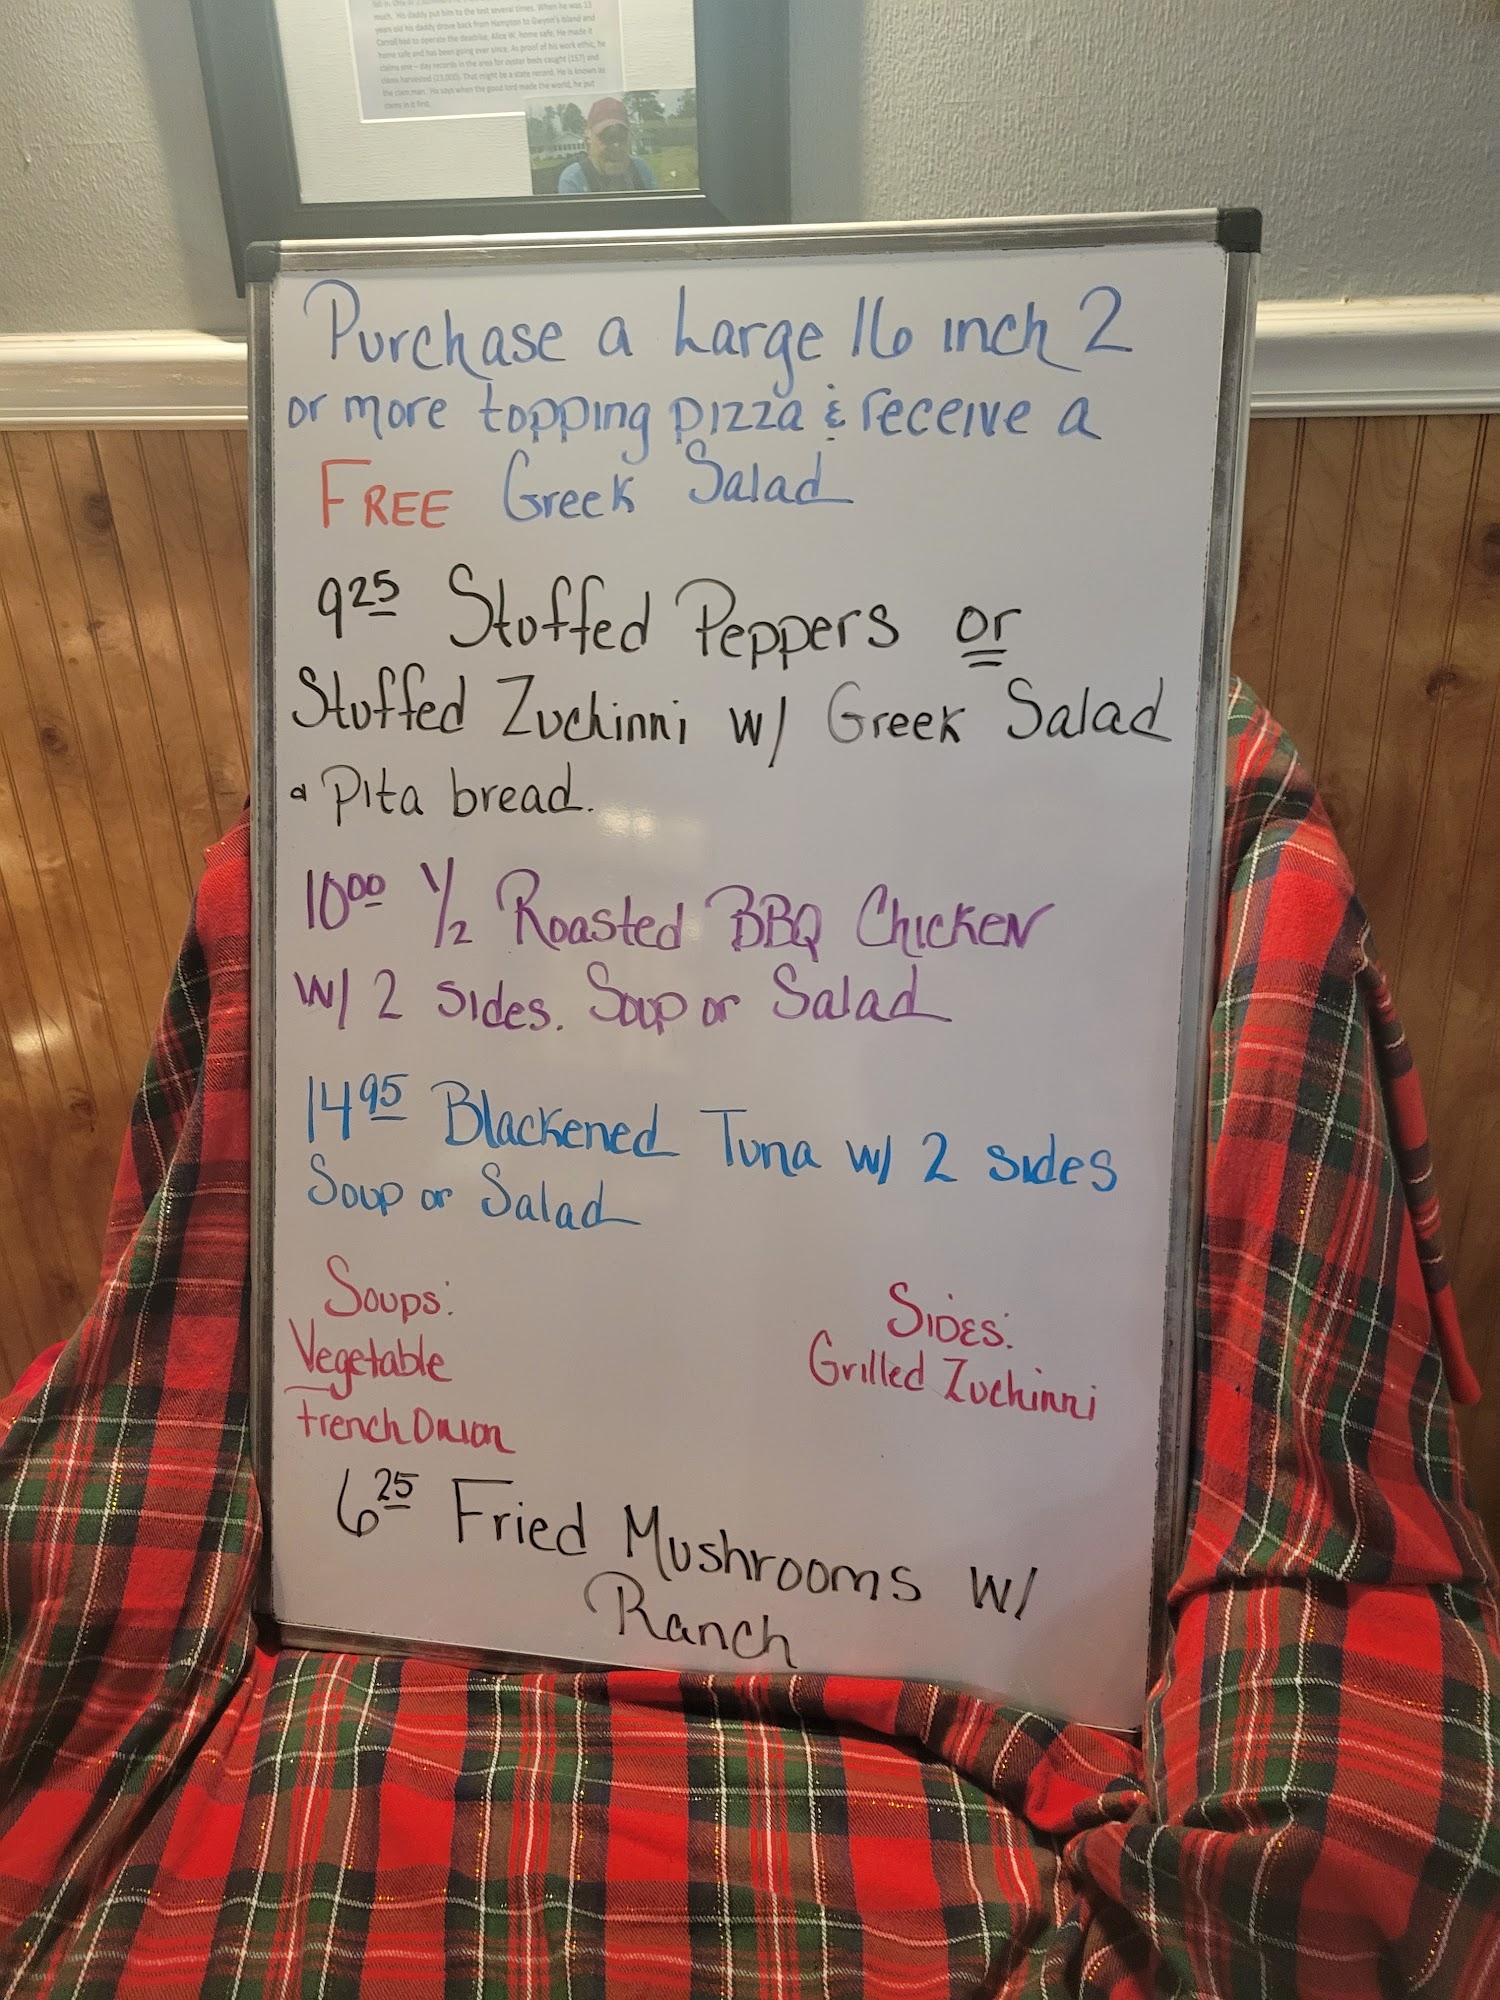 much. His daddy put him to the test several times. When he was 13
years old his daddy drove back from Hampton to Gwynn's Island and
Carroll had to operate the deadrise, Alice W. home safe. He made it
home safe and has been going ever since. As proof of his work ethic, he
claims one - day records in the area for oyster beds caught (157) and
clams harvested (23,000). That might be a state record. He is known as
the clam man. He says when the good lord made the world, he put
clams in it first.
Purchase a Large 16 inch 2
or more topping pizza & receive a
FREE Greek Salad
9 25 Stuffed Peppers or
Stuffed Zuchinni w/ Greek Salad
& Pita bread.
10 00 1/2 Roasted BBQ Chicken
w/ 2 sides. Soup or Salad
14 95 Blackened Tuna w/ 2 sides
Soup or Salad
Soups:
Vegetable
French Onion
Sides:
Grilled Zuchinni
6 25 Fried Mushrooms w/
Ranch